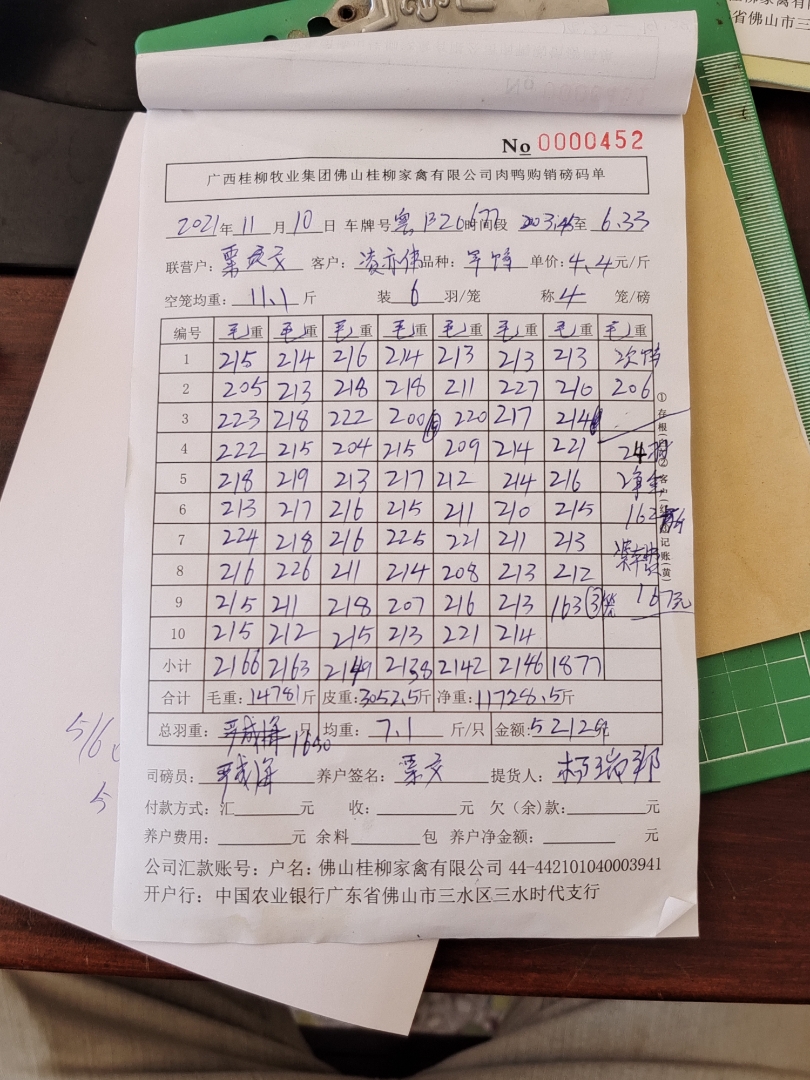 No 0000452
广西桂柳牧业集团佛山桂柳家禽有限公司肉鸭购销磅码单
2021年 11 月 10 日 车牌号 粤 时间段 至 6.33
联营户: 客户: 凌亦伟 品种: 单价: 4.4 元/斤
空笼均重: 11.1 斤 装 6 羽/笼 称 4 笼/磅
编号 毛重 毛重 毛重 毛重 毛重 毛重 毛重 毛重
1 215 214 216 214 213 213 213
2 205 213 218 218 211 227 210 206
3 223 218 222 200 220 217 214
4 222 215 204 215 209 214 221 24
5 218 219 213 217 212 214 216
6 213 217 216 215 211 210 215
7 224 218 216 225 221 211 213
8 216 226 211 214 208 213 212
9 215 211 218 207 216 213 163 ③ 167元
10 215 212 215 213 221 214
小计 2166 2163 2149 2138 2142 2146 1877
合计 毛重: 14781斤 皮重: 3052.5斤 净重: 11728.5斤
总羽重: 1650 只 均重: 7.1 斤/只 金额: 52129
司磅员: 养户签名: 提货人:
付款方式: 汇 元 收: 元 欠(余)款: 元
养户费用: 元 余料 包 养户净金额: 元
公司汇款账号: 户名: 佛山桂柳家禽有限公司 44-442101040003941
开户行: 中国农业银行广东省佛山市三水区三水时代支行